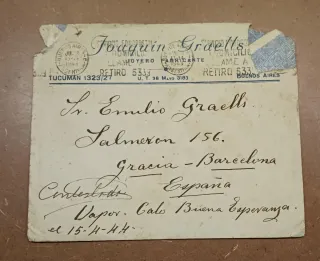 Joaquin Graells
JOYERO FABRICANTE
LLAME A
RETIRO 6331
LLAME A
RETIRO 6331
TUCUMAN 1323/27
U. T. 38 MAYO 0193
BUENOS AIRES
Sr. Emilio Graells
Salmeron 156.
Gracia - Barcelona
España
Contestada
Vapor. Cabo Buena Esperanza
el 15-4-44